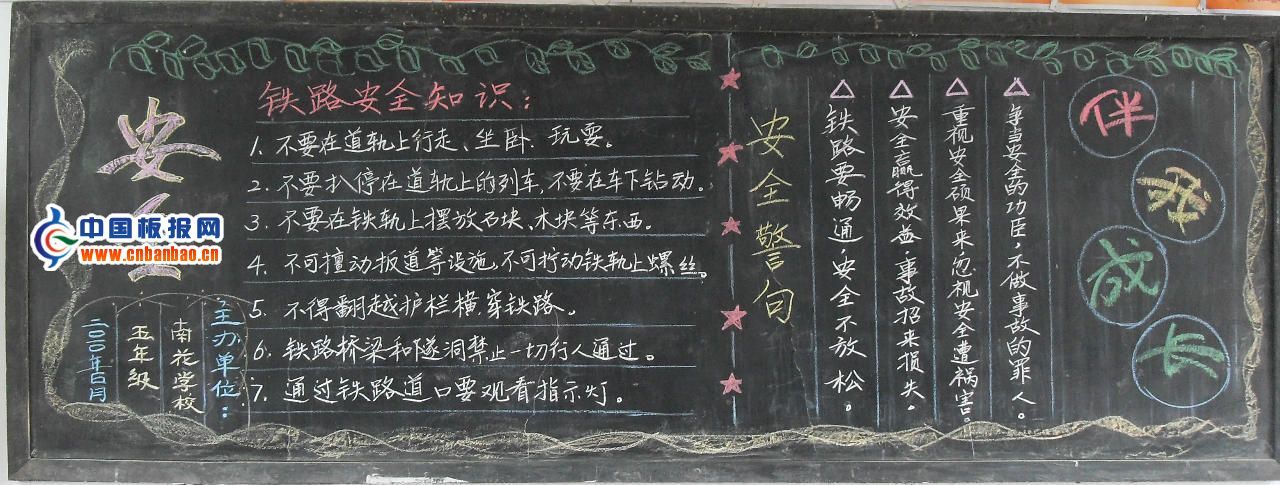 安全
中国板报网
www.cnbanbao.cn
主办单位：
南花学校
五年级
铁路安全知识：
1. 不要在道轨上行走、坐卧、玩耍。
2. 不要扒停在道轨上的列车，不要在车下钻动。
3. 不要在铁轨上摆放石块、木块等东西。
4. 不可擅动扳道等设施，不可拧动铁轨上螺丝。
5. 不得翻越护栏横穿铁路。
6. 铁路桥梁和隧洞禁止一切行人通过。
7. 通过铁路道口要观看指示灯。
安全警句
△铁路要畅通，安全不放松。
△安全赢得效益，事故招来损失。
△重视安全硕果来，忽视安全遭祸害。
△争当安全的功臣，不做事故的罪人。
伴
成
长